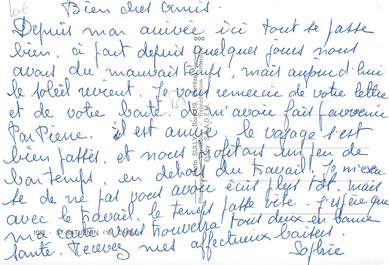 Bien chers Amis.
Depuis mon arrivée ici tout se passe
bien, à part depuis quelques jours nous
avons du mauvais temps, mais aujourd'hui
le soleil revient. Je vous remercie de votre lettre
et de votre bonté de m'avoir fait parvenir
par Pierre. il est arrivé, le voyage s'est
bien passés, et nous profitons un peu de
bon temps, en dehors du travail. Je m'excu
se de ne pas vous avoir écris plus tôt, mais
avec le travail, le temps passe vite. J'espère que
ma carte vous trouvera tous deux en bonne
santé. Recevez mes affectueux baisers.
Sophie